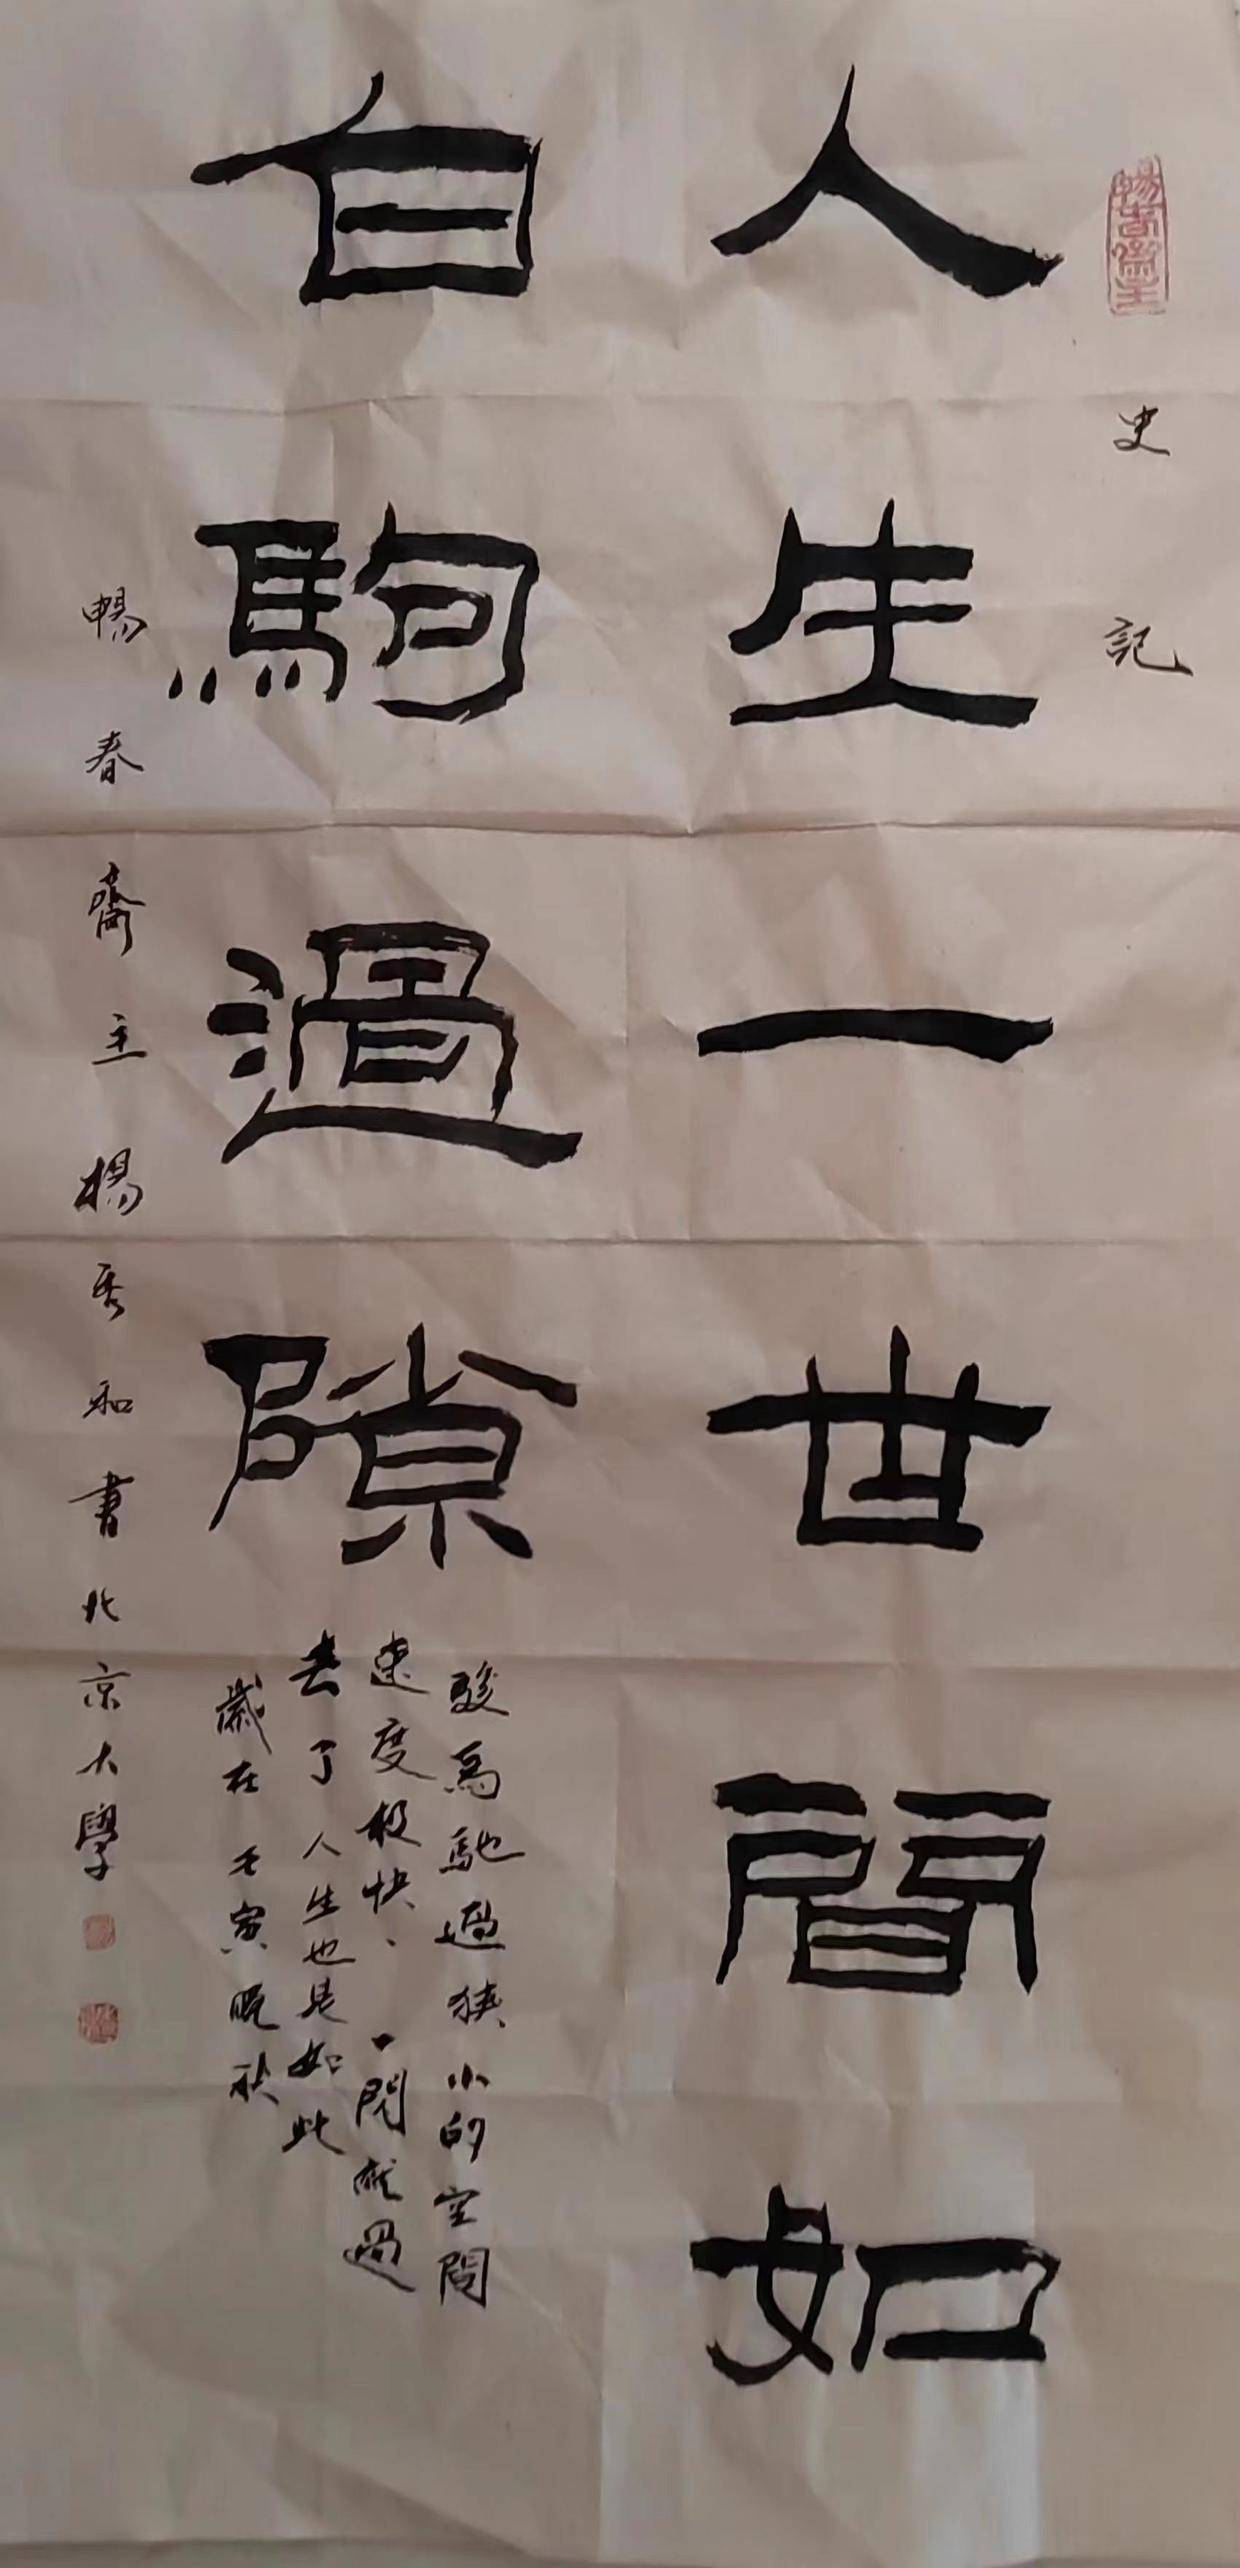 史記
人生一世間如
白駒過隙
駿馬馳過狹小的空間
速度极快、一閃就過
去了人生也是如此
歲在壬寅晚秋
暢春齋主楊秀和書北京大學
暢春齋主